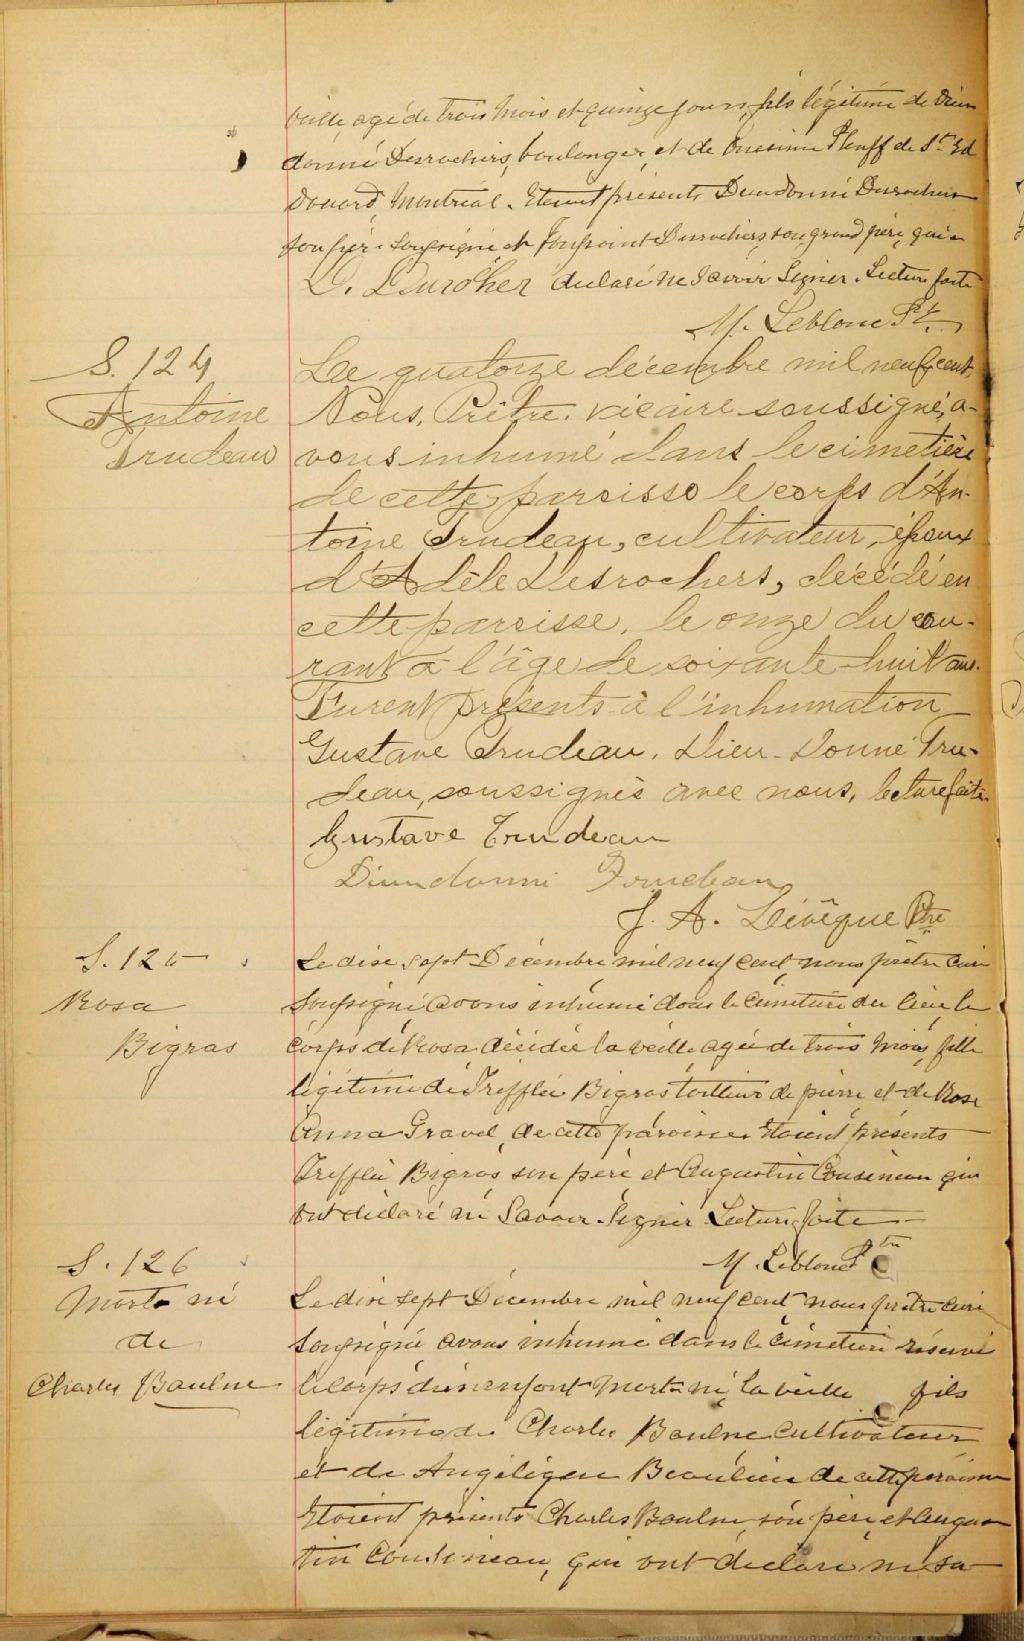 veille, agé de trois mois et quinze jours, fils légitime de Dieu
donné Desrochers, boulanger, et de Onesime Plouff de St. Ed
douard Montréal. Etaient présents Dieudonné Desrochers
son père soussigné et Toussaint Desrochers son grand père, qui a
D. Durocher déclaré ne savoir signer. Lecture faite
M. Leblanc Ptr.
S. 124
Antoine
Trudeau
Le quatorze décembre mil neuf cent,
Nous, Prêtre, vicaire soussigné, a-
vons inhumé dans le cimetière
de cette paroisse le corps d'An-
toine Trudeau, cultivateur, époux
d'Adèle Desrochers, décédé en
cette paroisse, le onze du cou-
rant à l'âge de soixante-huit ans.
Furent présents à l'inhumation
Gustave Trudeau, Dieu-Donné Tru-
deau, soussignés avec nous, lecture faite.
Gustave Trudeau
Dieudonné Trudeau
J. A. Lévêque Ptre
S. 125
Rosa
Bigras
Le dix sept Décembre mil neuf cent, nous prêtre curé
soussigné avons inhumé dans le cimetière du lieu, le
corps de Rosa, décédée la veille, agée de trois mois, fille
légitime de Trefflé Bigras tailleur de pierre et de Rose
Anna Gravel, de cette paroisse. Etaient présents
Trefflé Bigras son père et Augustin Cousineau qui
ont déclaré ne savoir signer. Lecture faite
M. Leblanc Ptre
S. 126
Mort né
de
Charles Baulne
Le dix sept Décembre mil neuf cent, nous prêtre curé
soussigné avons inhumé dans le cimetière réservé
le corps d'un enfant mort-né, la veille fils
légitime de Charles Baulne cultivateur
et de Angélique Beaulieu de cette paroisse
Etaient présents Charles Baulne, son père, et Augus
tin Cousineau, qui ont déclaré ne sa